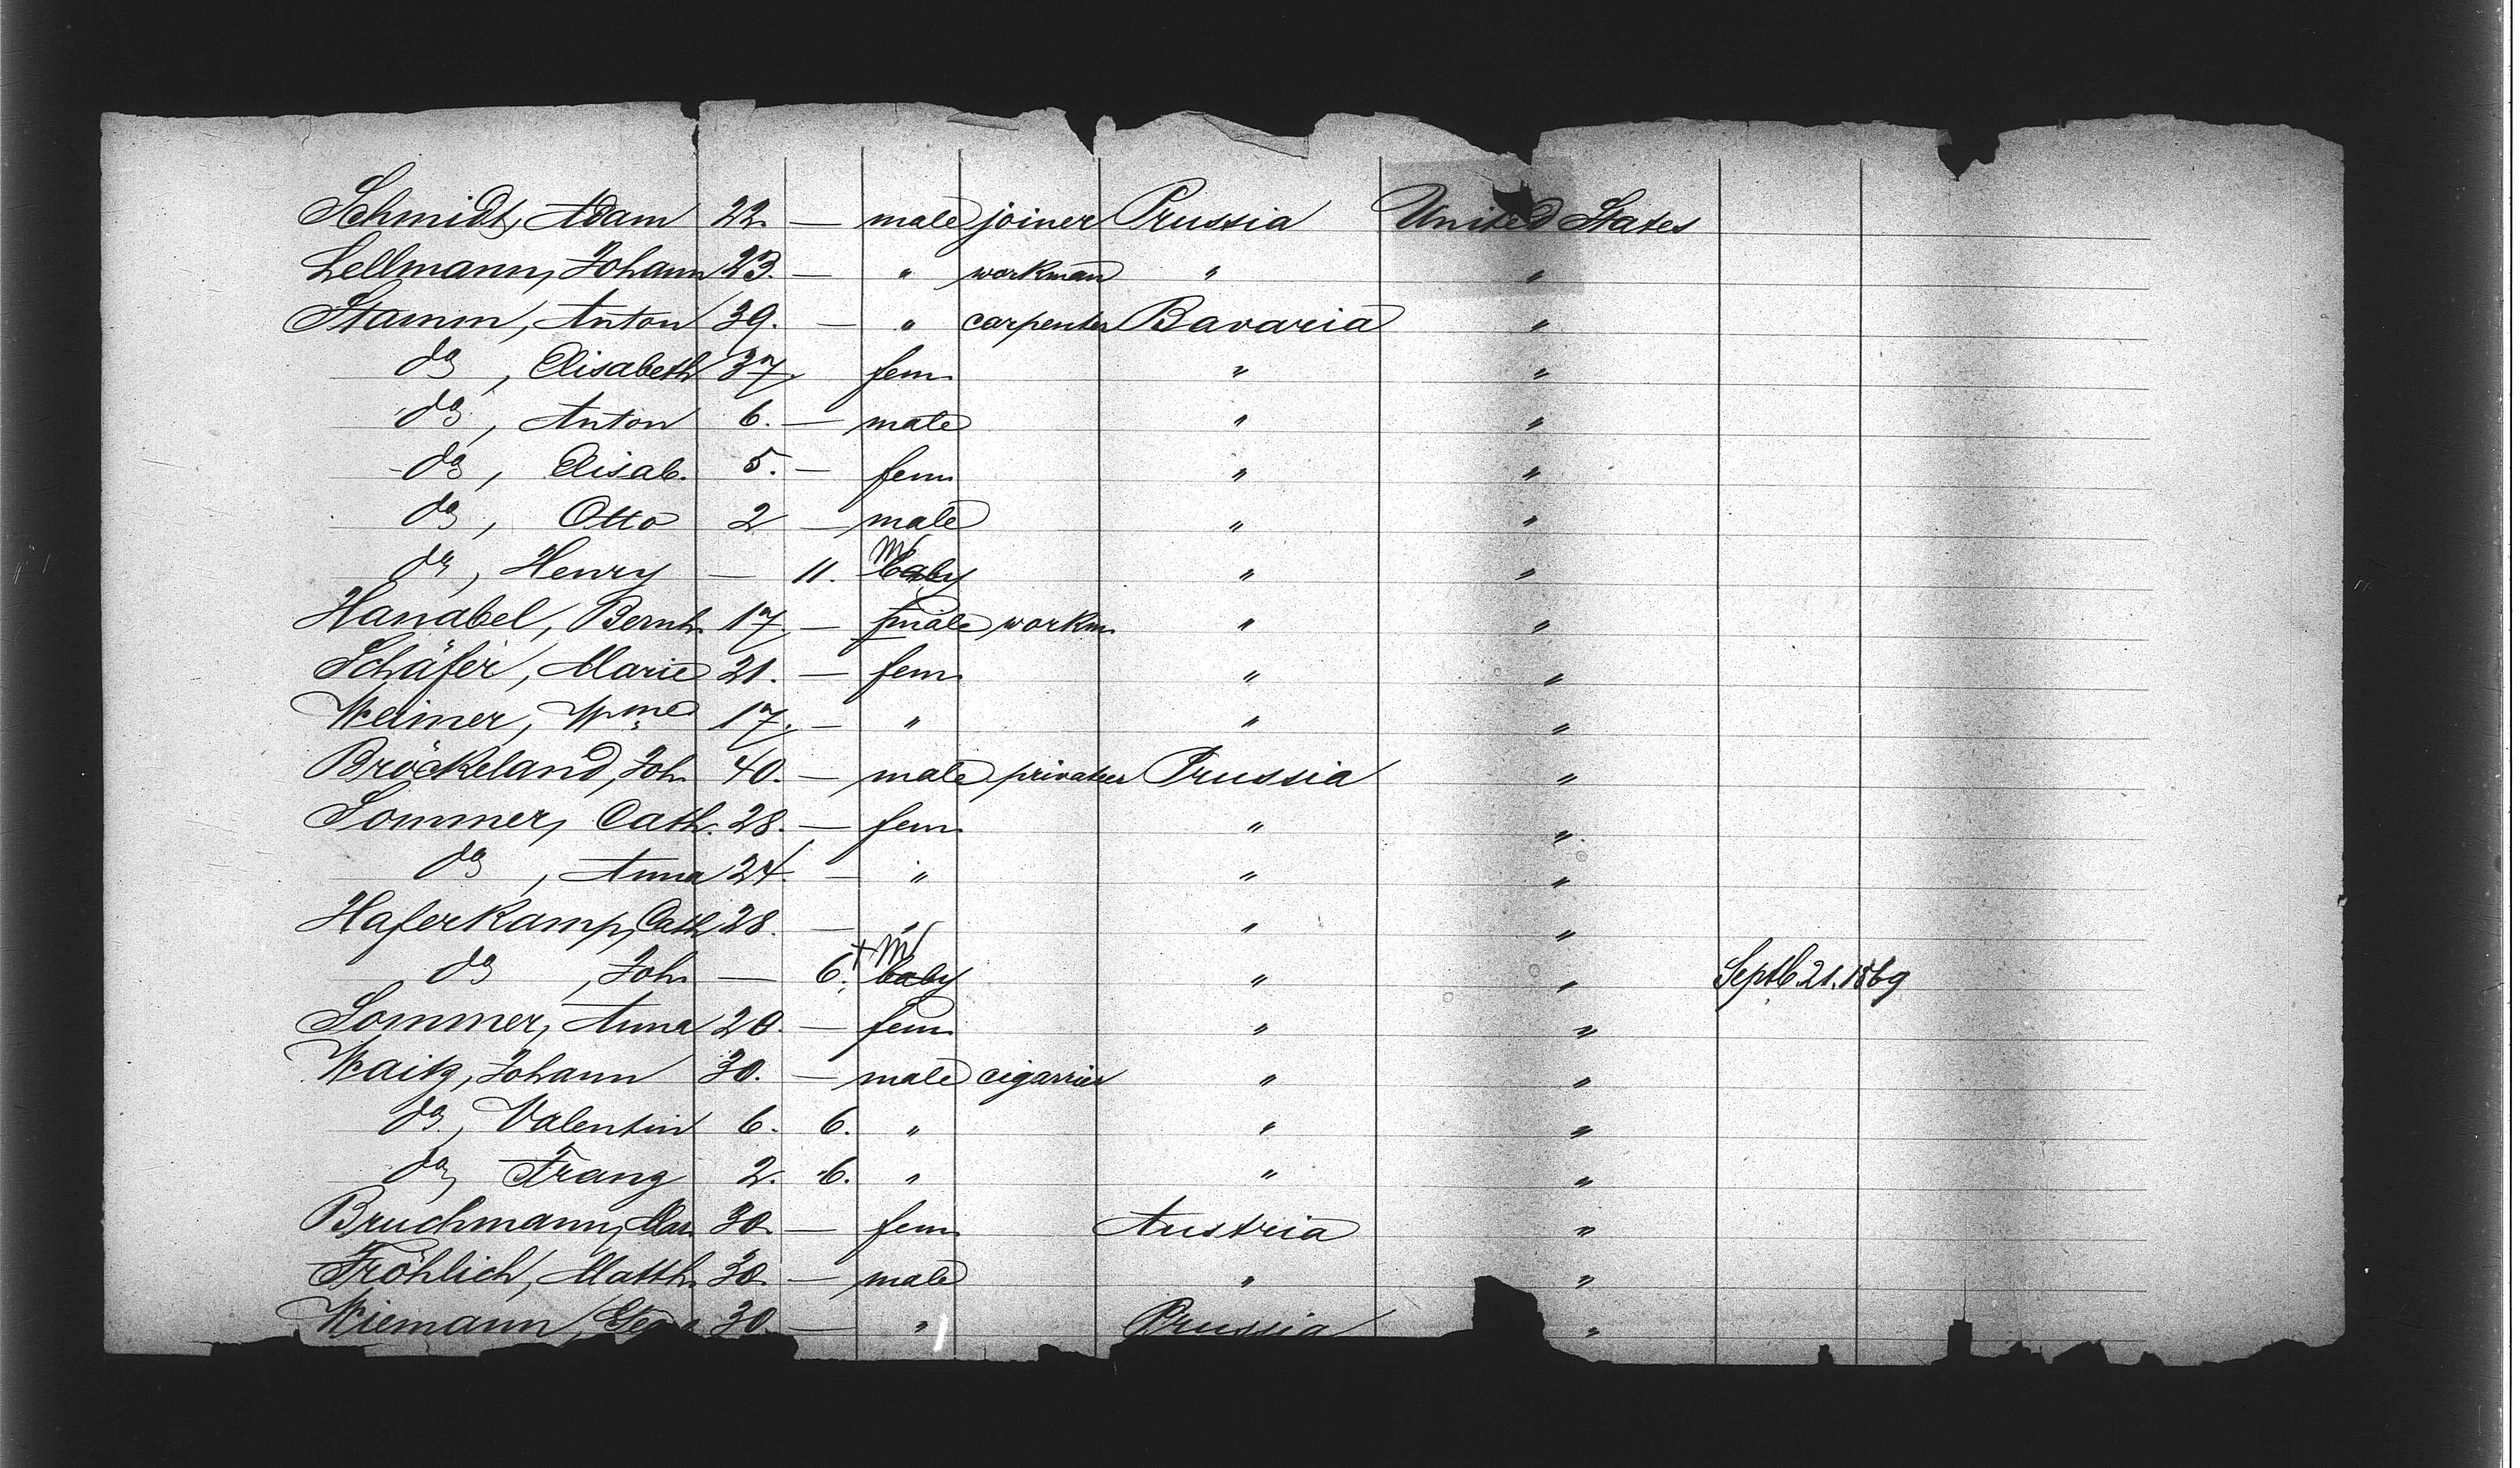 Schmidt, Adam 22. — male joiner Prussia United States
Lellmann, Johann 23. — " workman " "
Stamm, Anton 39. — " carpenter Bavaria "
do, Elisabeth 37. fem " "
do, Anton 6. — male " "
do, Elisab. 5. — fem " "
do, Otto 2 — male " "
do, Henry — 11. M baby " "
Hanabel, Bernh. 17. — male workm. " "
Schäfer, Marie 21. — fem " "
Weimer, Wme 17. — " " "
Bröckeland, Joh. 40. — male privatier Prussia "
Sommer, Cath. 28. — fem " "
do, Anna 24. — " " "
Haferkamp, Cath 28. — " " "
do, Joh. — 6. + M baby " " Septb. 21. 1869
Sommer, Anna 20. — fem " "
Waitz, Johann 30. — male cigarrier " "
do, Valentin 6. 6. " " "
do, Franz 2. 6. " " "
Bruchmann, Mar. 30. — fem Austria "
Fröhlich, Matth. 30. — male " "
Wiemann, 30. — " Prussia "